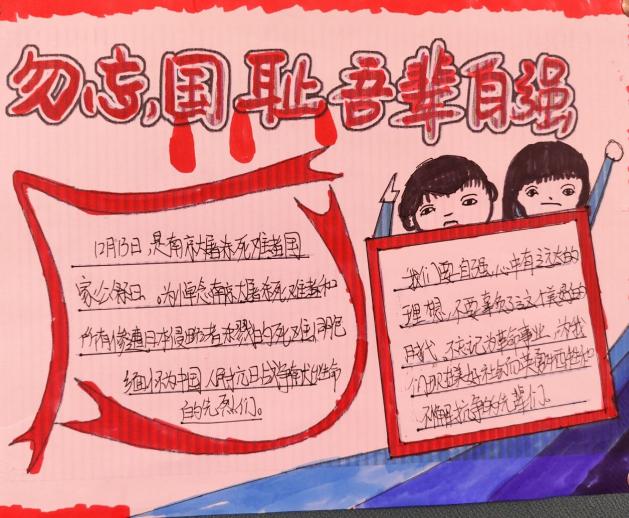 勿忘国耻 吾辈自强
12月13日,是南京大屠杀死难者国
家公祭日。为悼念南京大屠杀死难者和
所有惨遭日本侵略者杀戮的死难同胞
缅怀为中国人民抗日战争献出生命
的先烈们。
我们要自强,心中有远大的
理想,不要辜负了这个美好的
时代,不忘记为革命事业,为我
们现在美好生活而英勇牺牲
不懈抗争的先辈们。